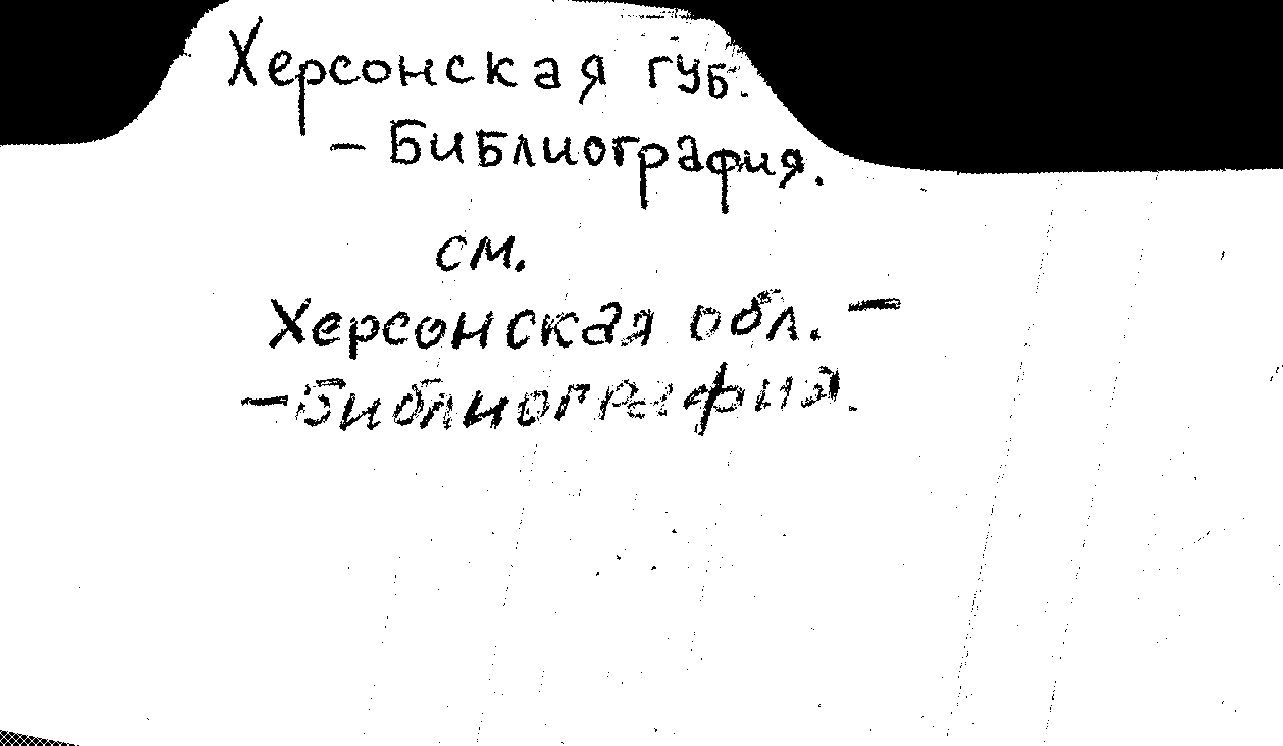 Херсонская губ.
- Библиография.
см.
Херсонская обл. -
- Библиография.